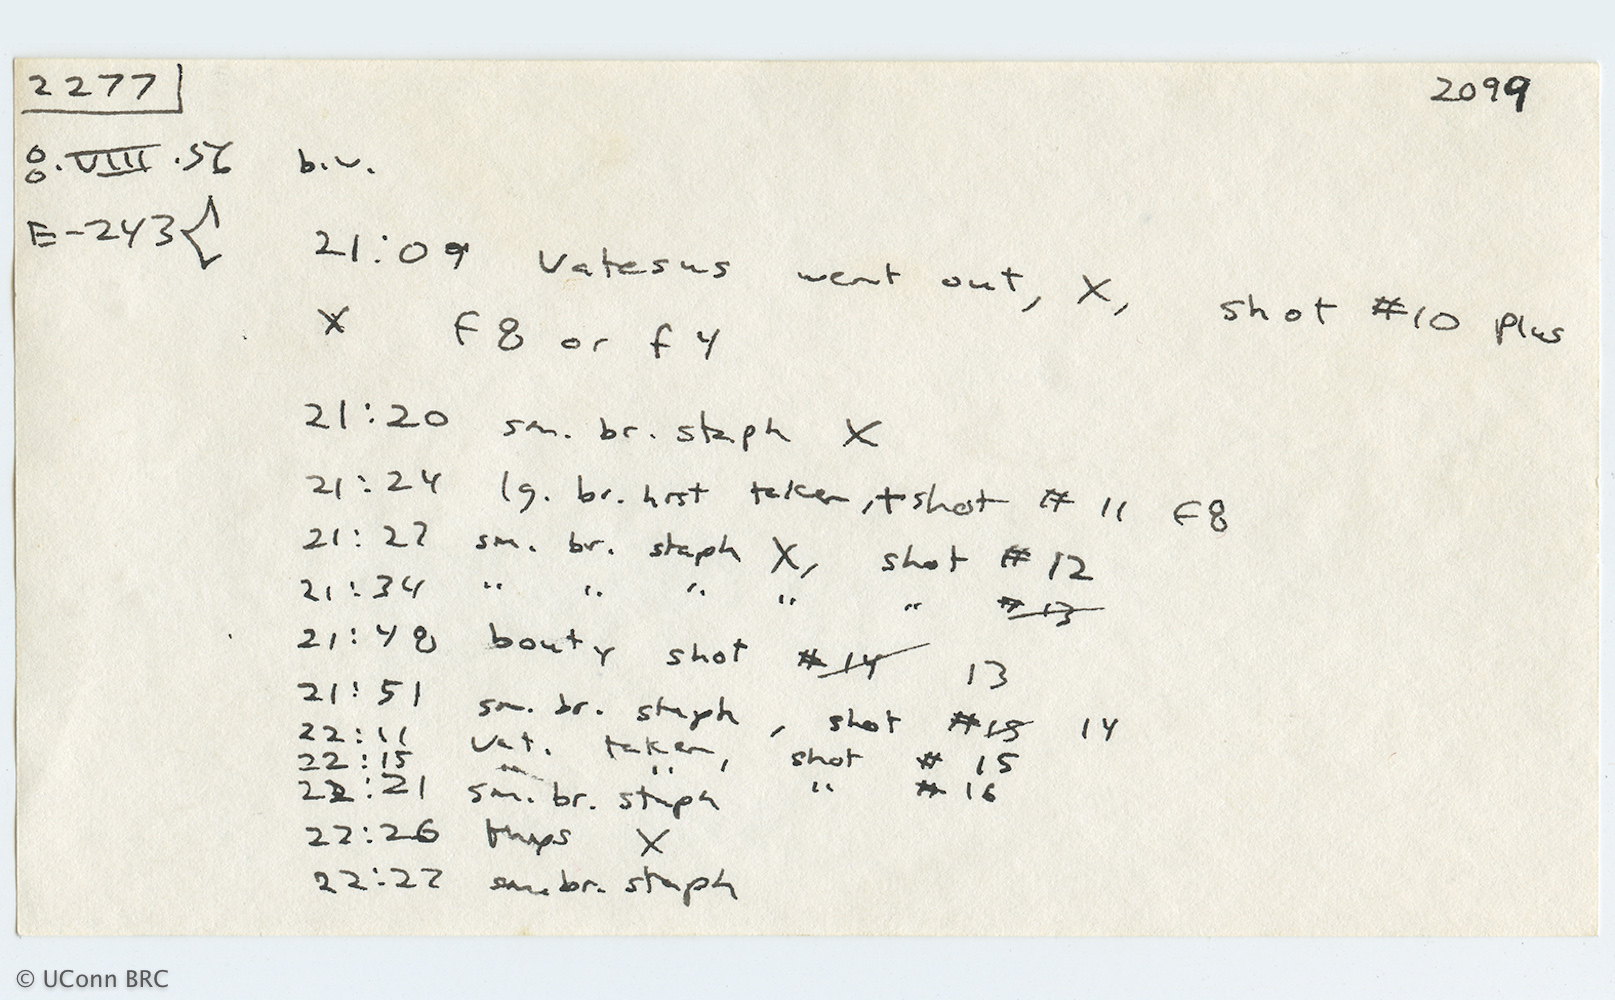 2277
2099
8.VIII.56 b.v.
E-243 { 21:09 Vatesus went out, X, shot #10 plus
X F8 or f4
21:20 sm. br. staph X
21:24 lg. br. hrst taken, + shot # 11 F8
21:27 sm. br. staph X, shot # 12
21:34 " " " " " #13
21:48 bouty shot #14 13
21:51 sm. br. staph, shot #15 14
22:11 Vat. taken, shot # 15
22:15 " "
22:21 sm. br. staph " # 16
22:26 X
22:27 sm. br. staph
© UConn BRC